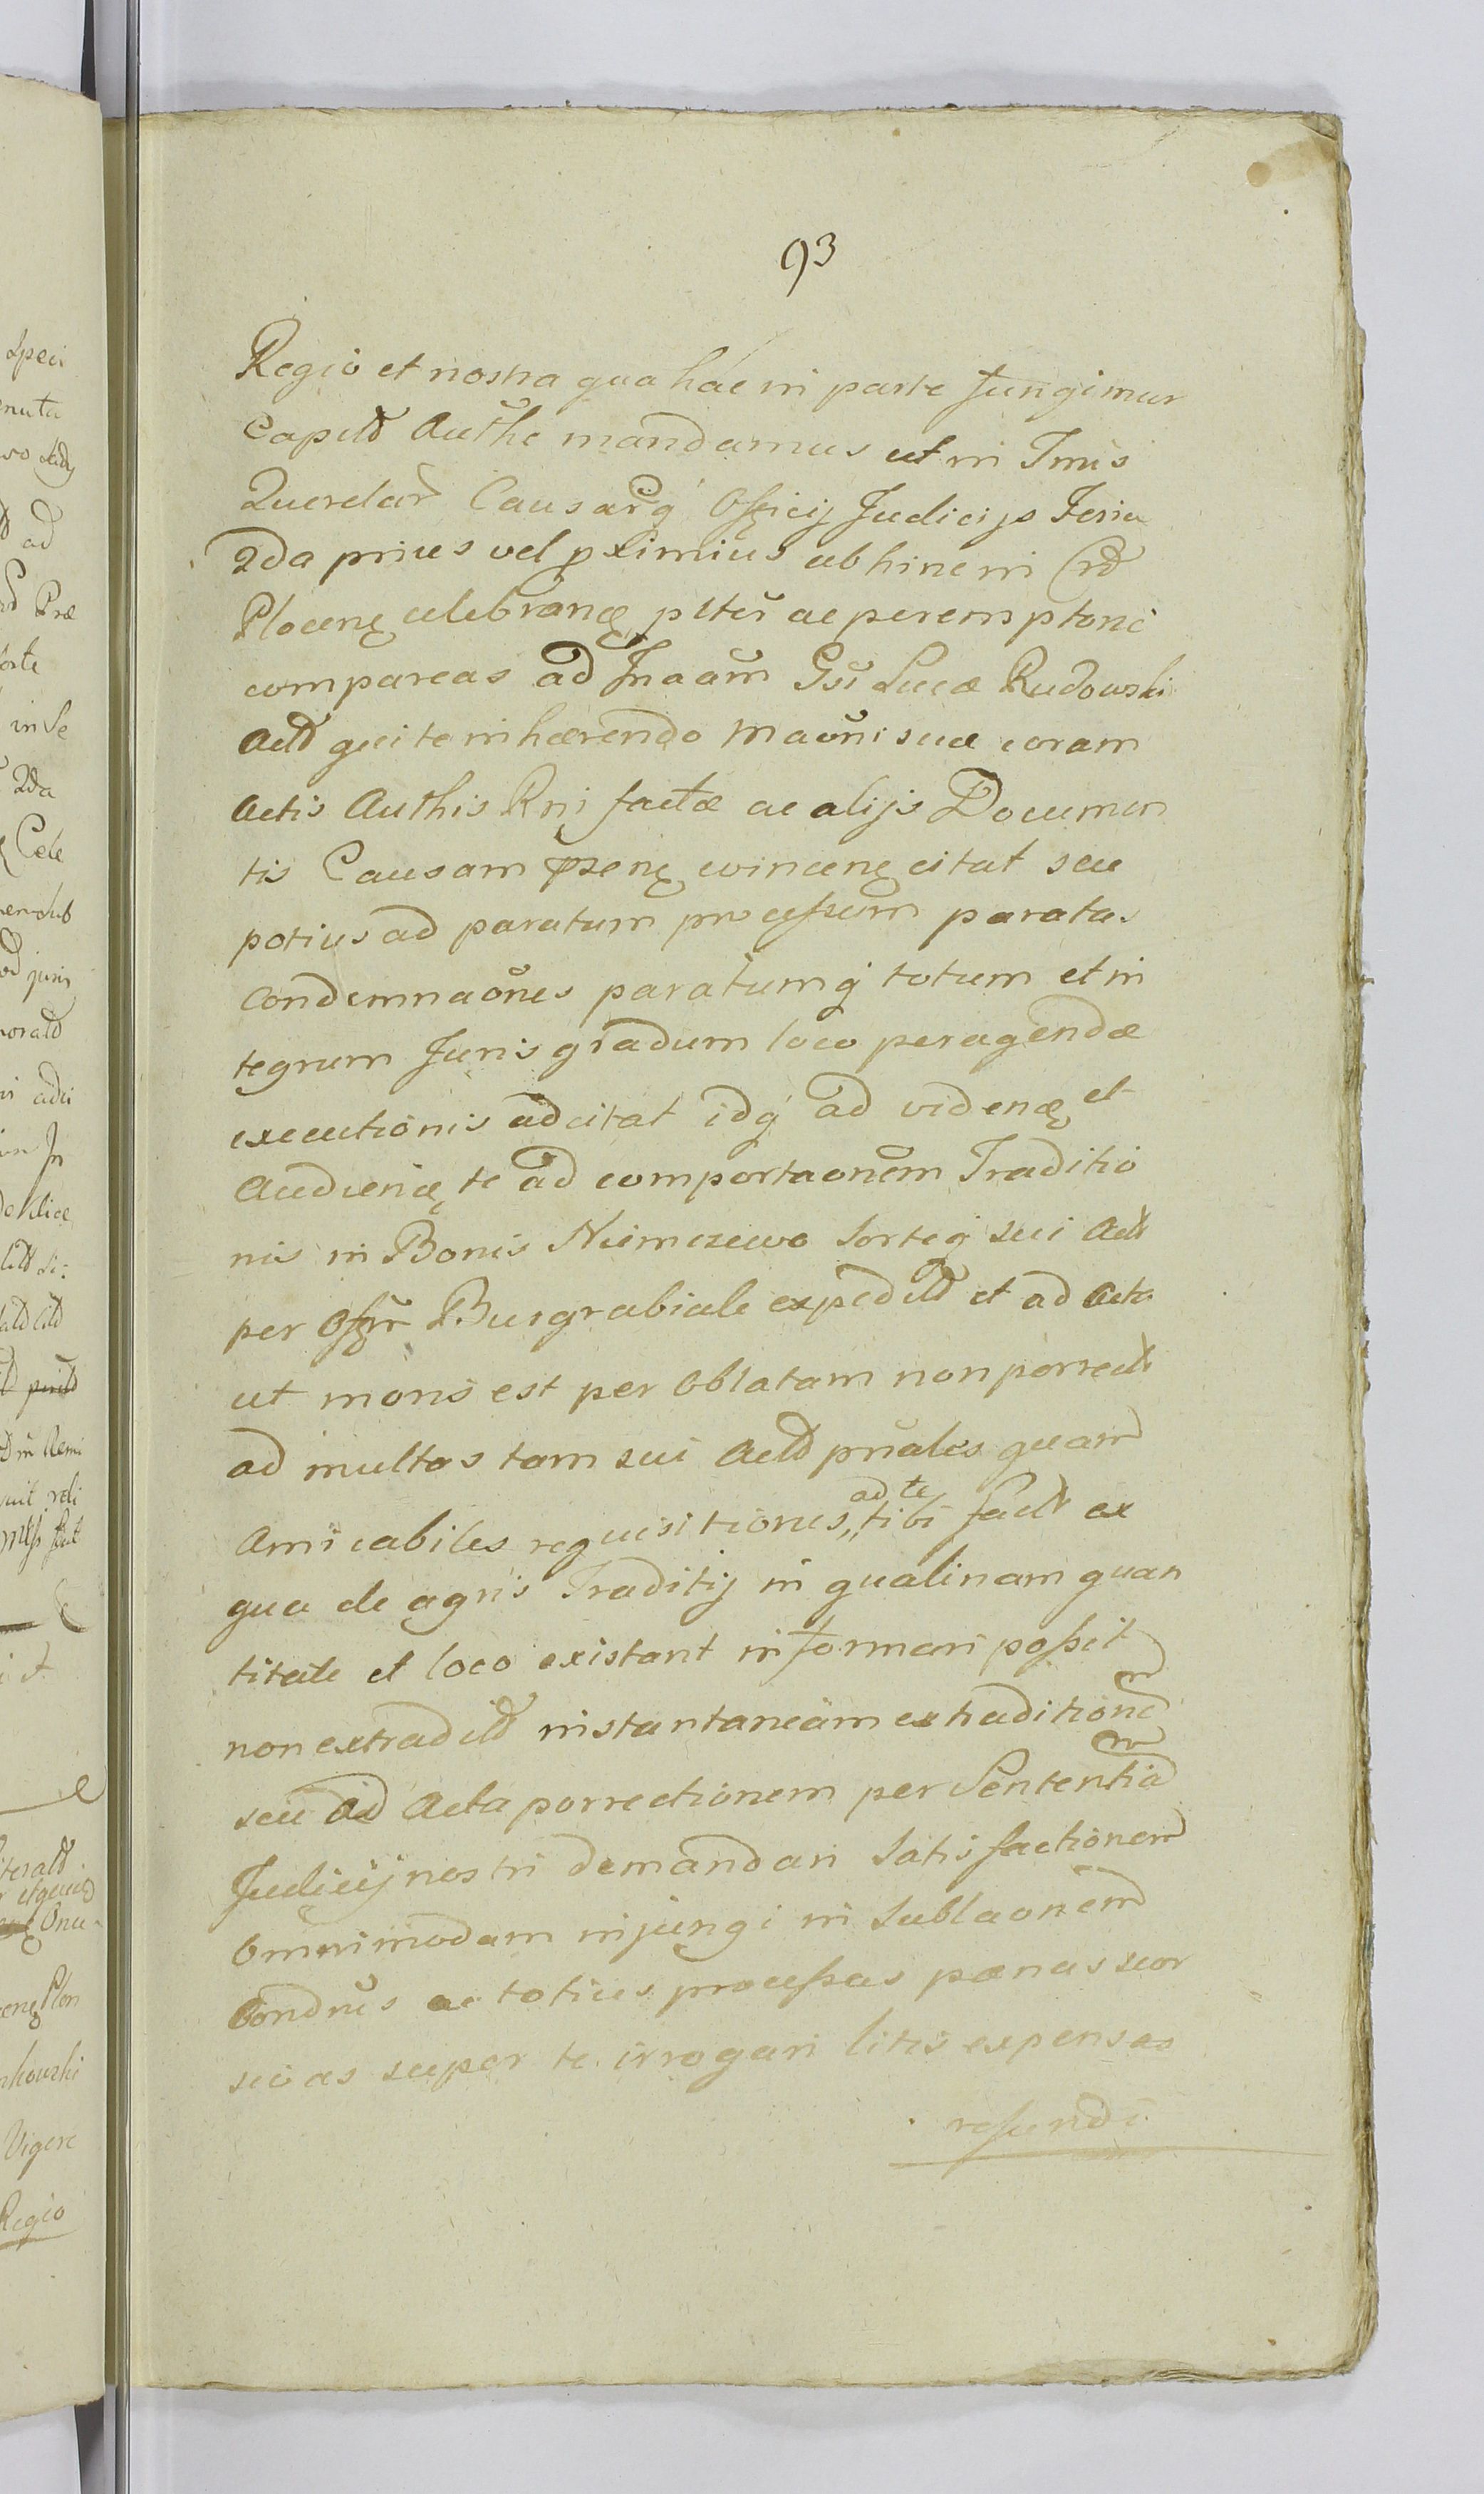 93
Regio et nostra qua hác in parte fungimur
Capitd Authe mandamus ut in Tmis
Querelar Causarq Officij Judicijs Feria
2da prius vel pximius abhinc in Crd
Plocenę celebranę pltėr ac peremptorie
compareas ad Jnaãm Gsi Lucæ Rudowski
Actd qui te inhærendo Maõni suæ coram
Actis Authis Rnj factæ ac alijs Documen
tis Causam pzenę wincenę citat seu
potius ad paratum processum paratas
Condemnaõnes paratumq totum et in
tegrum Juris gradum loco peragendæ
executionis adcitat idq ad videnę et
Audienę te ad comportaonem Traditio
nis in Bonis Niemczewo Sorteq sui Actt
per Offm Burgrabiale expeditd et ad Acta
ut moris est per Oblatam non porrectt
ad multas tam sui Actd pnales quam
ad te
Amicabiles requisitiones,, tibi factt ex
qua de agris Traditij in qualinam quan
titate et loco existant informari possit
non extraditd instantaneam extraditione
seu ad Acta porrectionem per Sententiam
Judicij nostri demandari Satisfactionem
Omnimodam injungi in Sublaonem
Condnis ac totius processus pœnas suor
sivas super te irrogari litis expensas
refundi
Spea
ad
Præ
in Se
2da
Cele
juris
adci
Plon
Vigere
Regio